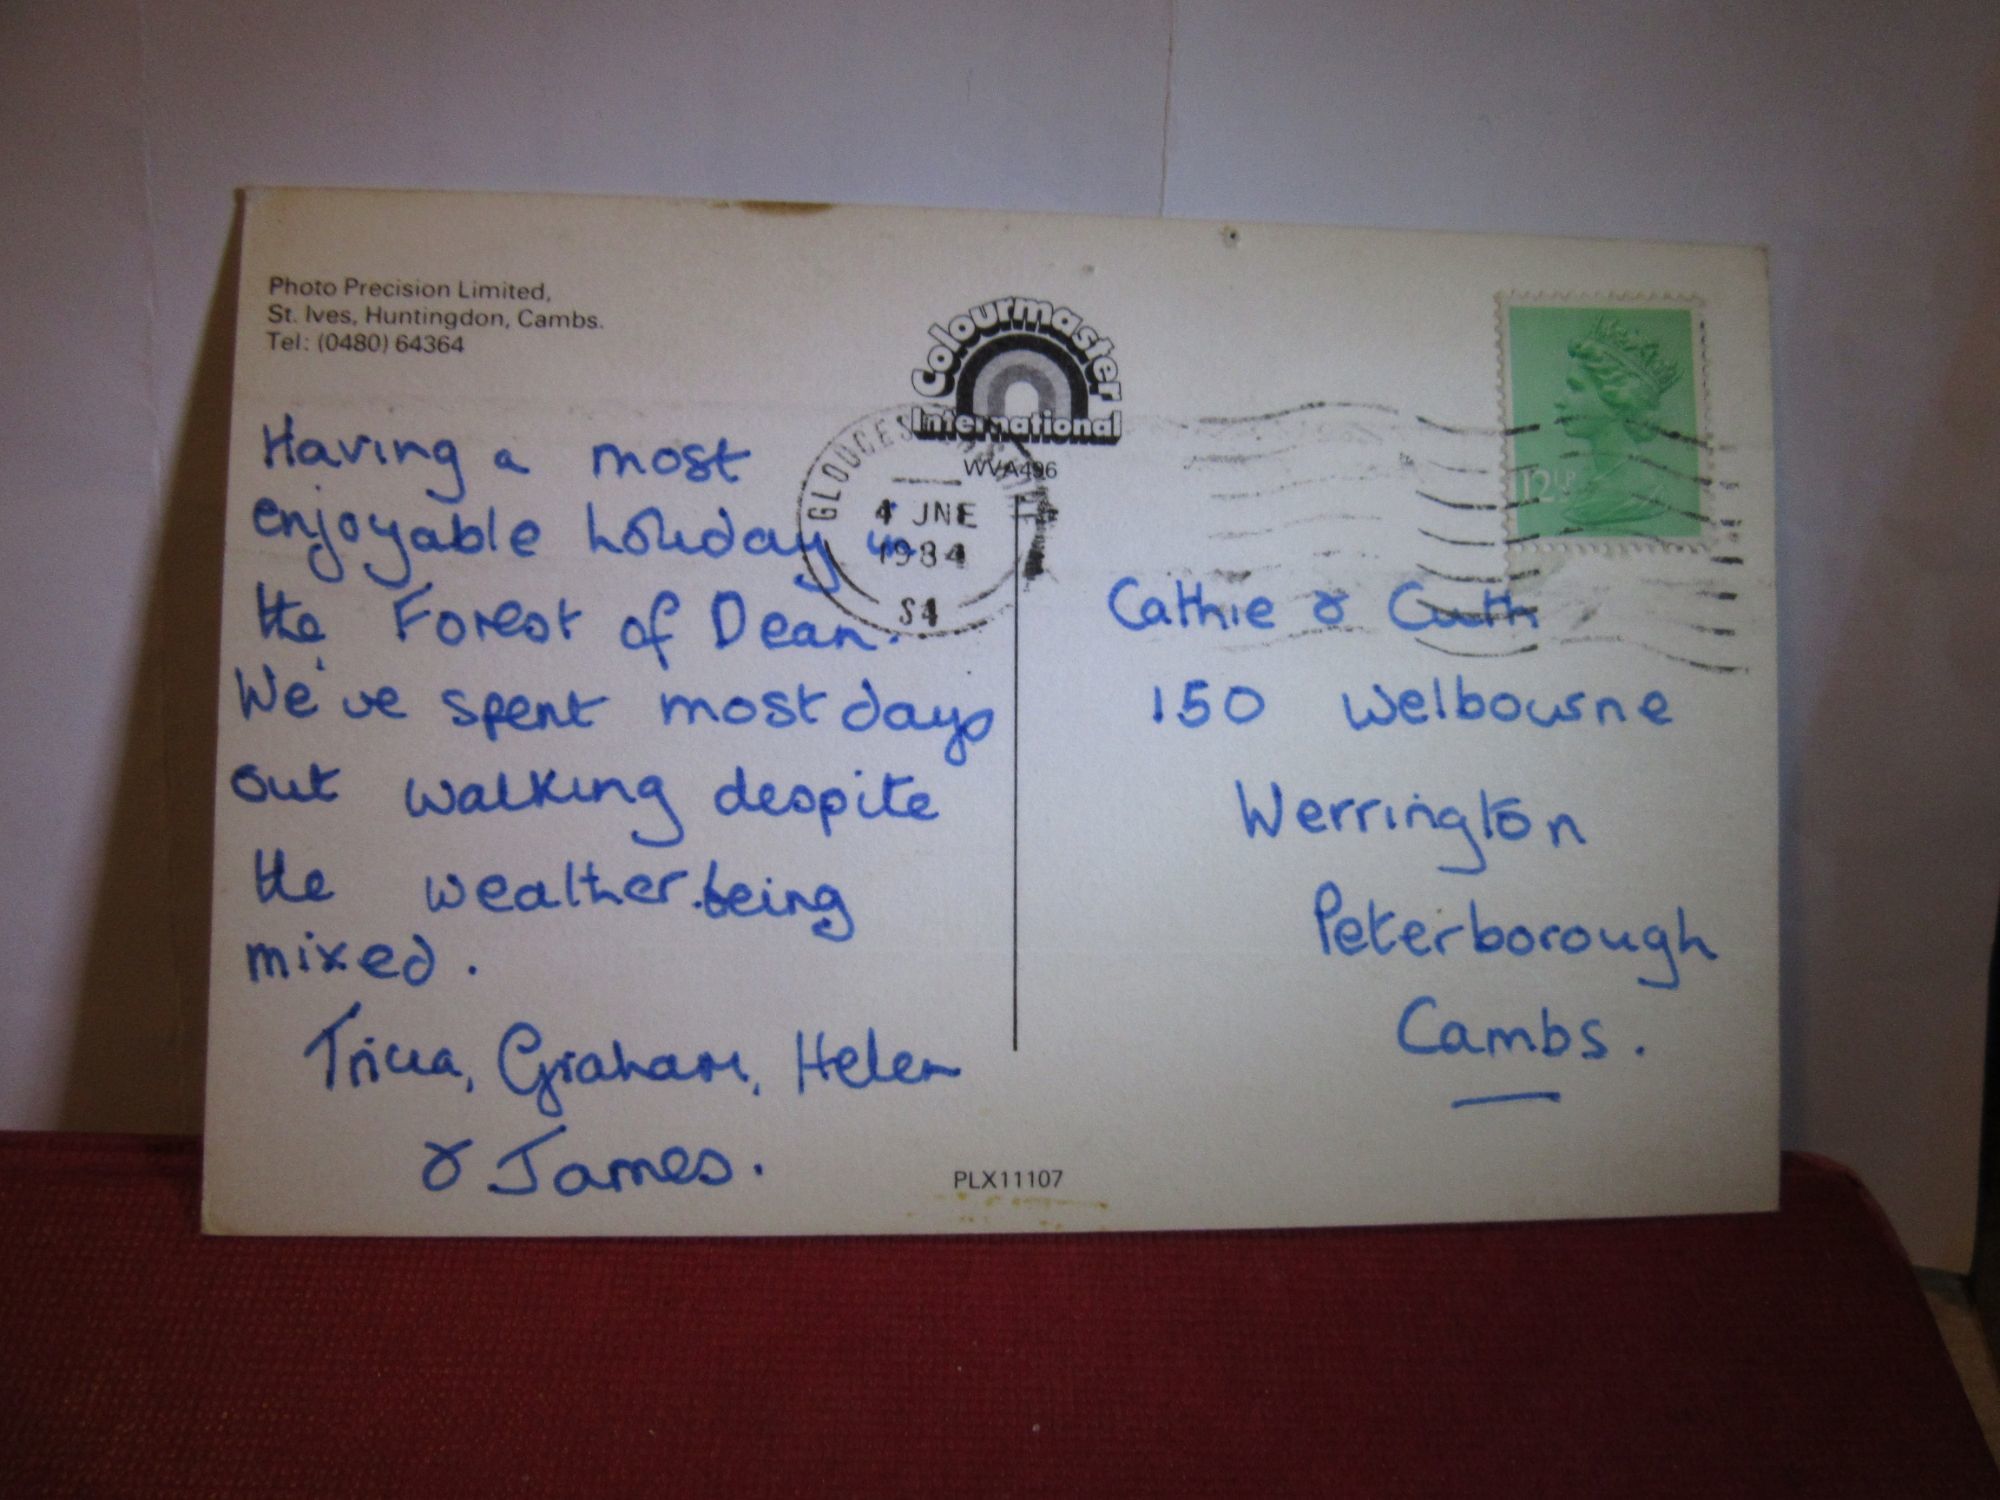 Photo Precision Limited,
St. Ives, Huntingdon, Cambs.
Tel: (0480) 64364
Colourmaster
International
WVA496
12½P
4 JNE
1984
S4
Having a most
enjoyable holiday in
the Forest of Dean.
We've spent most days
out walking despite
the weather being
mixed.
Tricia, Graham, Helen
& James.
Cathie & Cuth
150 Welbourne
Werrington
Peterborough
Cambs.
PLX11107